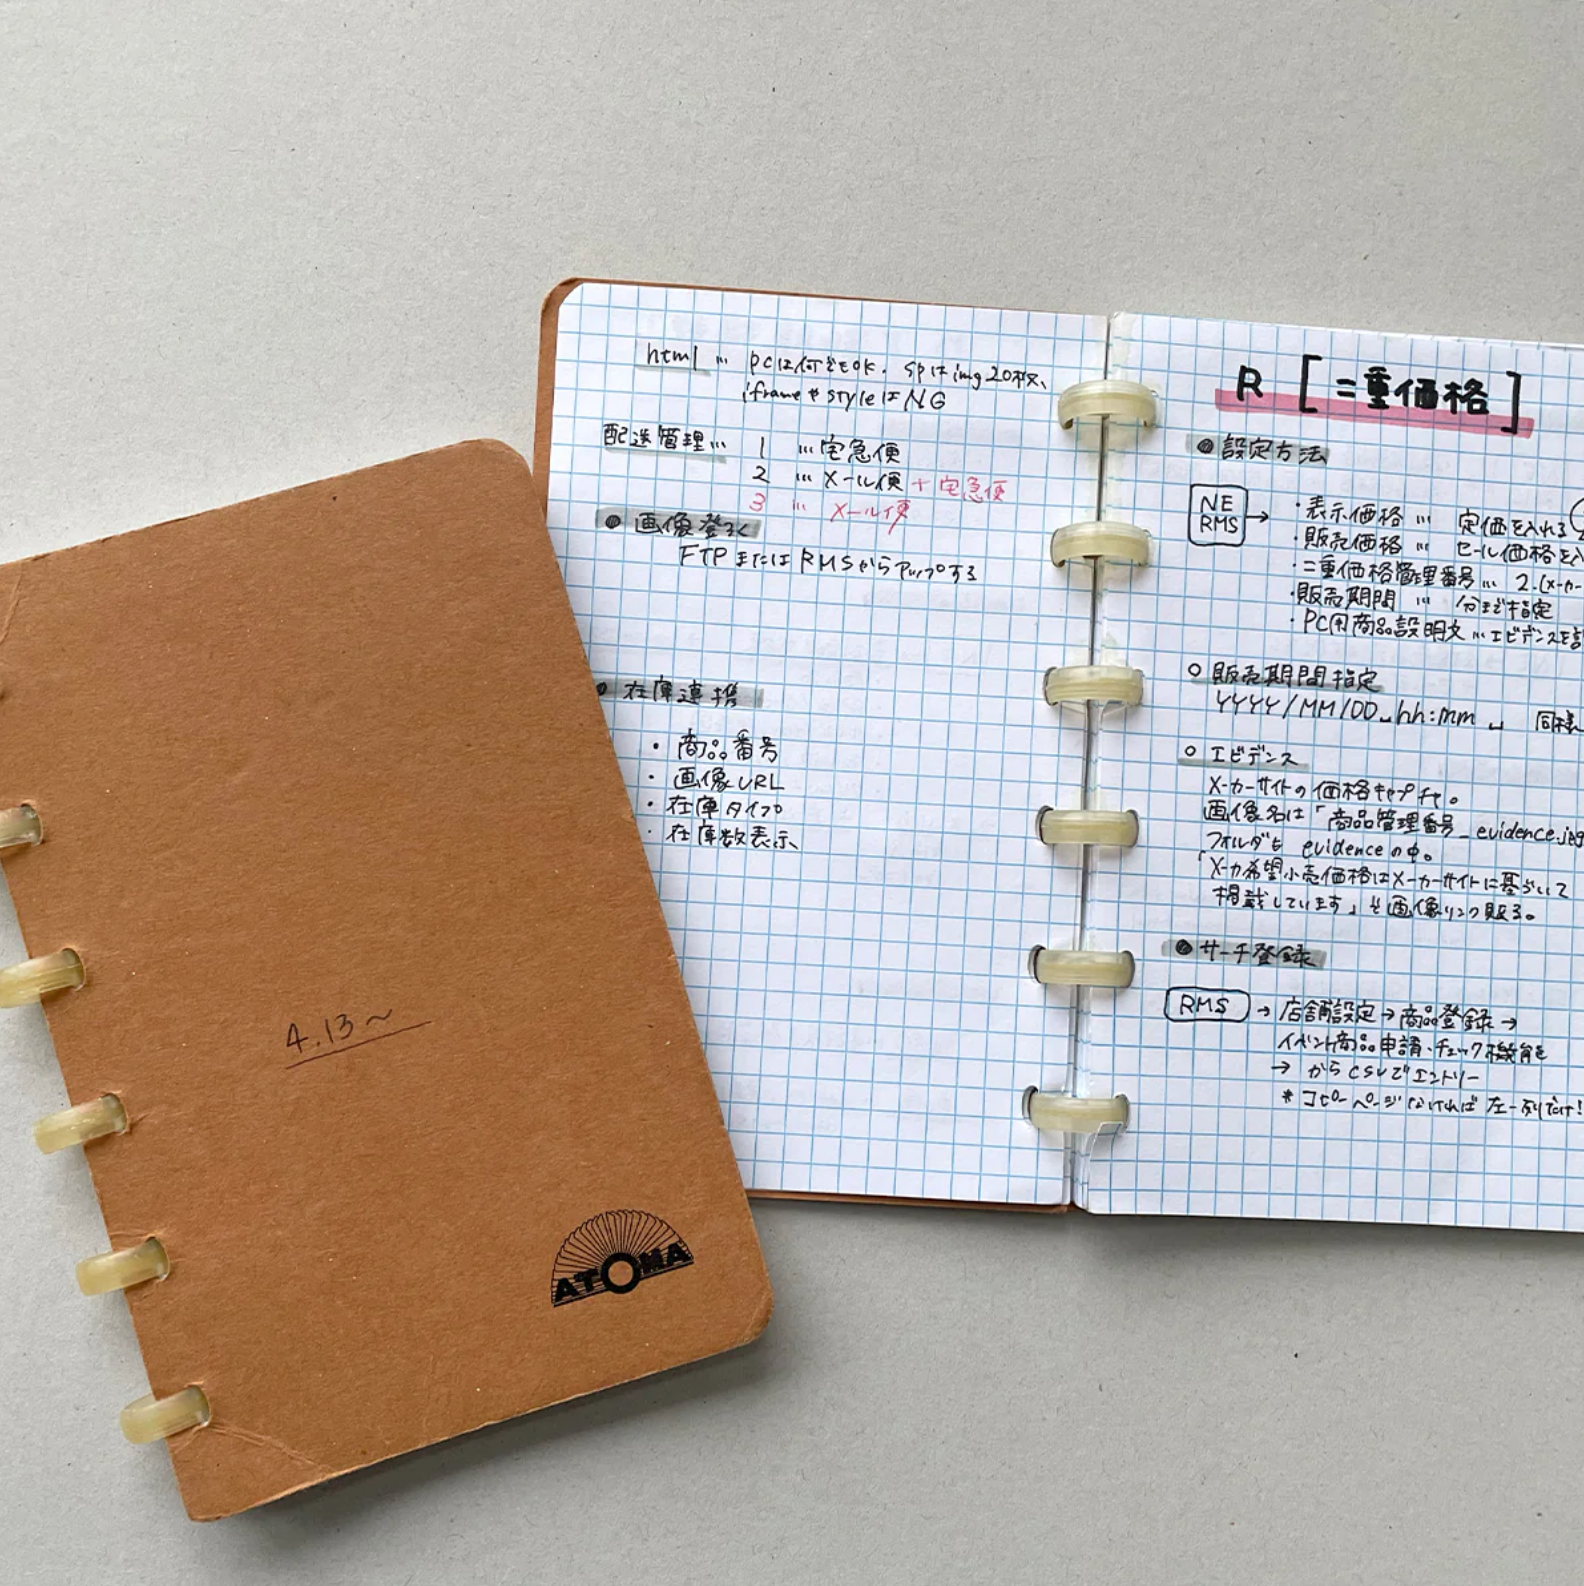 4.13～
ATOMA
html … pcは何でもok. spはimg20枚、
iframeやstyleはNG
配送管理… 1 …宅急便
2 …メール便+宅急便
3 … メール便
● 画像登録
FTPまたはRMSからアップする
● 在庫連携
・商品番号
・画像URL
・在庫タイプ
・在庫数表示
R [二重価格]
● 設定方法
NE
RMS →
・表示価格 … 定価を入れる
・販売価格 … セール価格を入
・二重価格管理番号… 2.(メーカー
・販売期間 … 分まで指定
・PC用商品説明文…エビデンスを
○ 販売期間指定
YYYY/MM/DD␣hh:mm␣ 同様
○ エビデンス
メーカーサイトの価格キャプチャ。
画像名は「商品管理番号_evidence.jpg
フォルダも evidenceの中。
「メーカ希望小売価格はメーカーサイトに基づいて
掲載しています」と画像リンク貼る。
● サーチ登録
RMS → 店舗設定→商品登録→
イベント商品申請・チェック機能
→ からcsvでエントリー
*コピーページなければ左一列だけ!